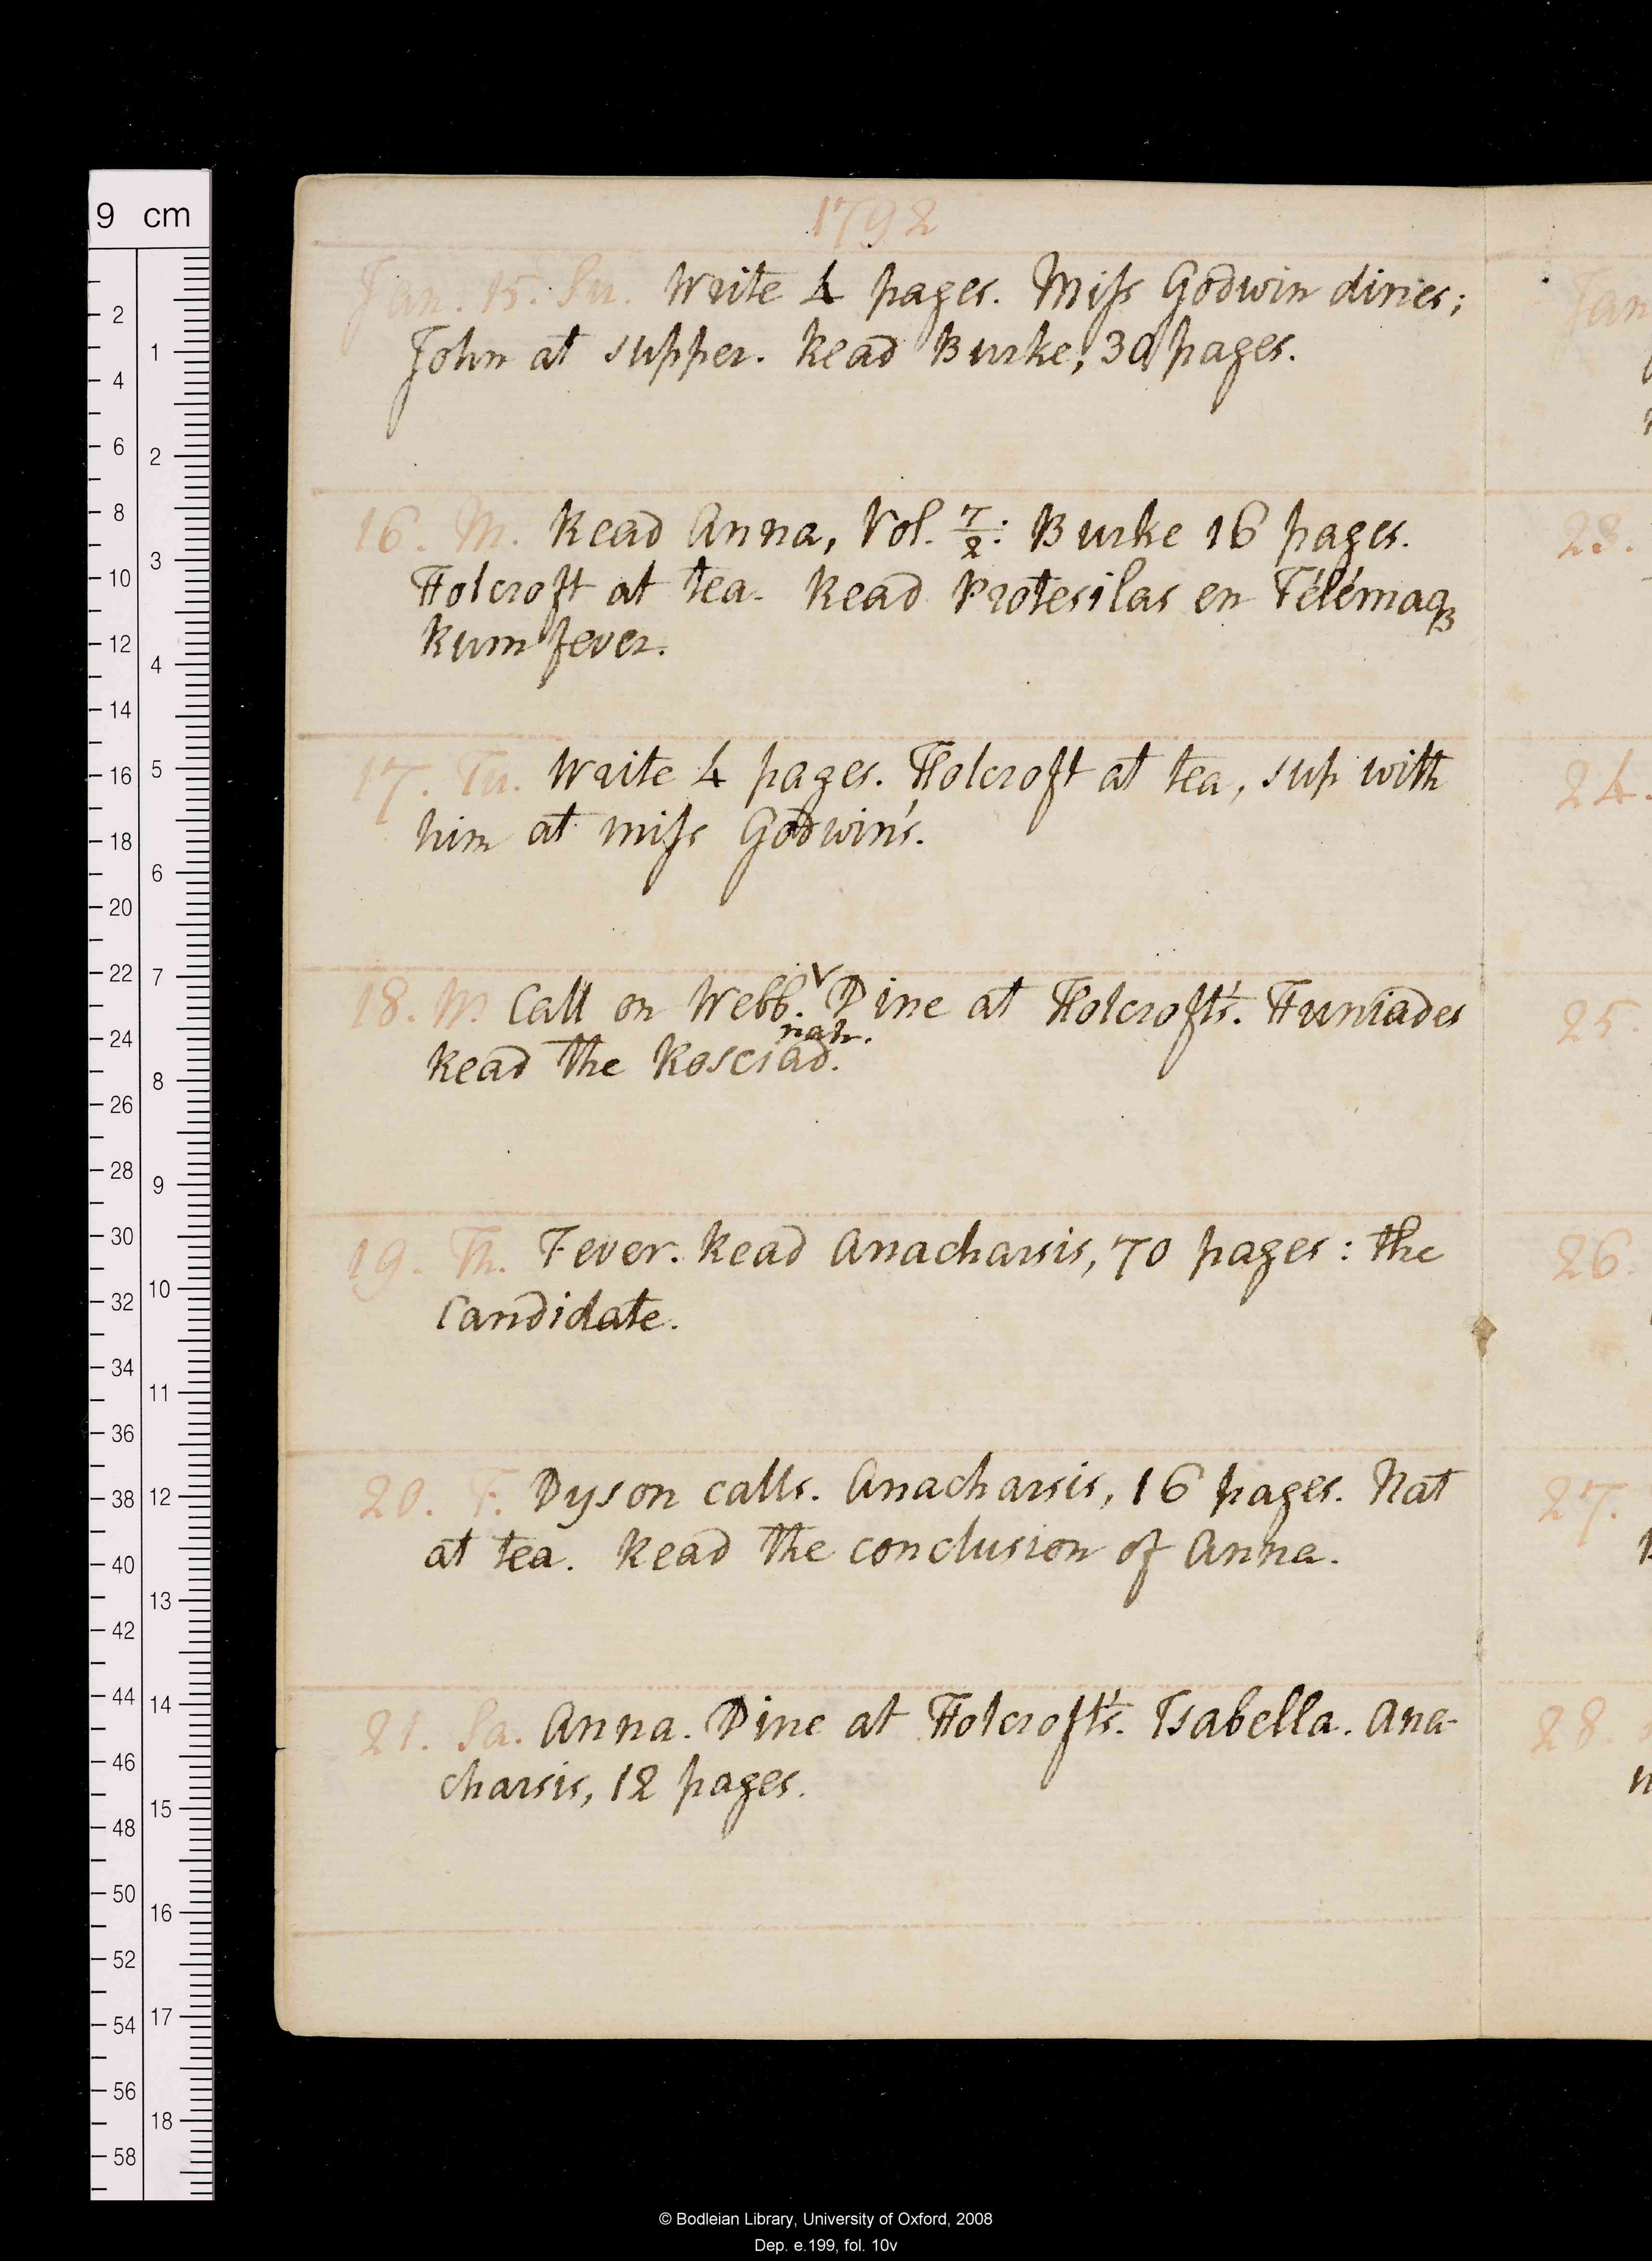 1792
Jan. 15. Su. Write 4 pages. Miſs Godwin dines;
John at supper. Read Burke, 30 pages.
16. M. Read Anna, Vol. 7/2: Burke 16 pages.
Holcroft at tea. Read Protesilas en Télémaq
Rum fever.
17. Tu. Write 4 pages. Holcroft at tea, sup with
him at miſs Godwin's.
18. W. Call on Webb. Dine at Holcroft's. Huniades
nah.
Read the Rosciad.
19. Th. Fever. Read Anacharsis, 70 pages: the
Candidate.
20. F. Dyson calls. Anacharsis, 16 pages. Nat
at tea. Read the conclusion of Anna.
21. Sa. Anna. Dine at Holcroft's. Isabella. Ana-
charsis, 12 pages.
Jan
23.
24.
25.
26.
27.
28.
9 cm
2 4 6 8 10 12 14 16 18 20 22 24 26 28 30 32 34 36 38 40 42 44 46 48 50 52 54 56 58
1 2 3 4 5 6 7 8 9 10 11 12 13 14 15 16 17 18
© Bodleian Library, University of Oxford, 2008
Dep. e.199, fol. 10v